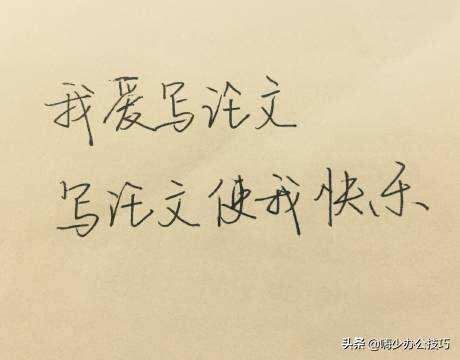 我爱写论文
写论文使我快乐
头条@嗨少办公技巧